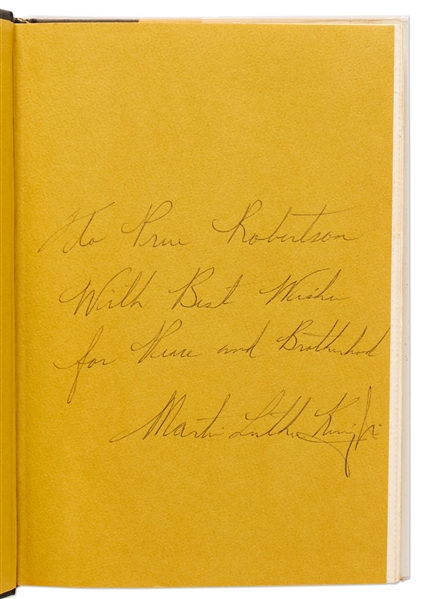 To Prue Robertson
With Best Wishes
for Peace and Brotherhood
Martin Luther King Jr.